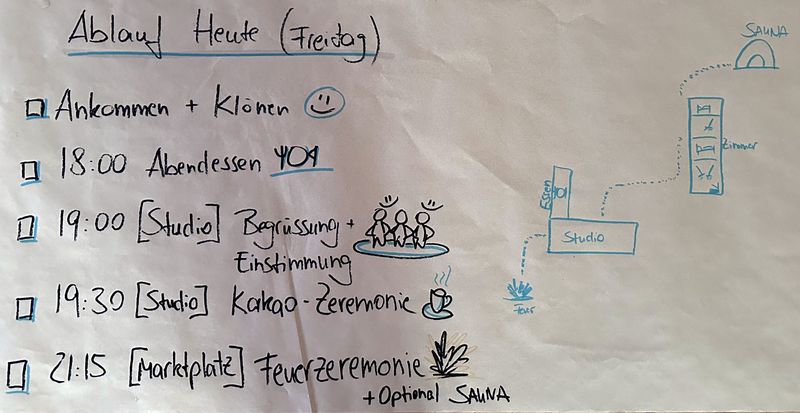 Ablauf Heute (Freitag)
Ankommen + Klönen
18:00 Abendessen
19:00 [Studio] Begrüssung +
Einstimmung
19:30 [Studio] Kakao-Zeremonie
21:15 [Marktplatz] Feuerzeremonie
+ Optional SAUNA
SAUNA
Zimmer
Essen
Studio
Feuer